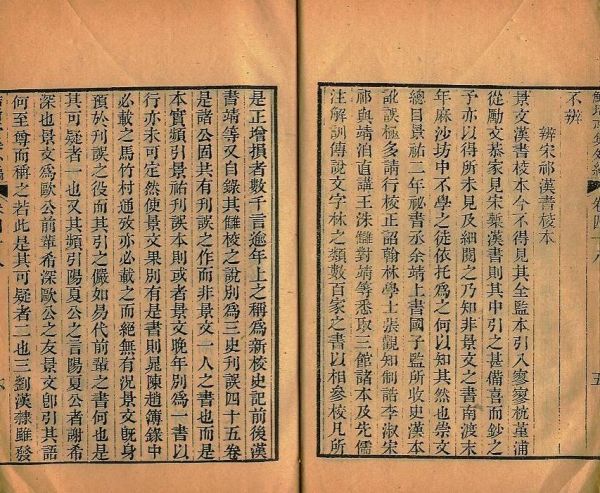 不辨
辨宋祁漢書校本
景文漢書校本今不得見其全監本引入寥寥杭堇浦
從勵文恭家見宋槧漢書則其中引之甚備喜而鈔之
予亦以得所未見及細閱之乃知非景文之書南渡末
年麻沙坊中不學之徒依托爲之何以知其然也崇文
總目景祐二年祕書丞余靖上書國子監所收史漢本
訛誤極多請行校正詔翰林學士張觀知制誥李淑宋
祁與靖洎直講王洙讎對靖等悉取三館諸本及先儒
注解訓傳說文字林之類數百家之書以相參校凡所
是正增損者數千言逾年上之稱爲新校史記前後漢
書靖等又自錄其讎校之說別爲三史刊誤四十五卷
是諸公固共有刊誤之作而非景文一人之書也而是
本實頻引景祐刊誤本則或者景文晚年別爲一書以
行亦未可定然使景文果別有是書則晁陳趙簿錄中
必載之馬竹村通攷亦必載之而絕無有況景文旣身
預於刊誤之役而其引之儼如易代前輩之書何也是
其可疑者一也又其頻引陽夏公之言陽夏公者謝希
深也景文爲歐公前輩希深歐公之友景文卽引其語
何至尊而稱之若此是其可疑者二也三劉漢隸雖發
卷四十八
五